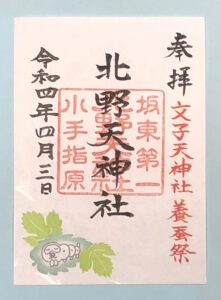 奉拝
文子天神社 養蚕祭
坂東第一
北野天神社
小手指原
令和四年四月三日